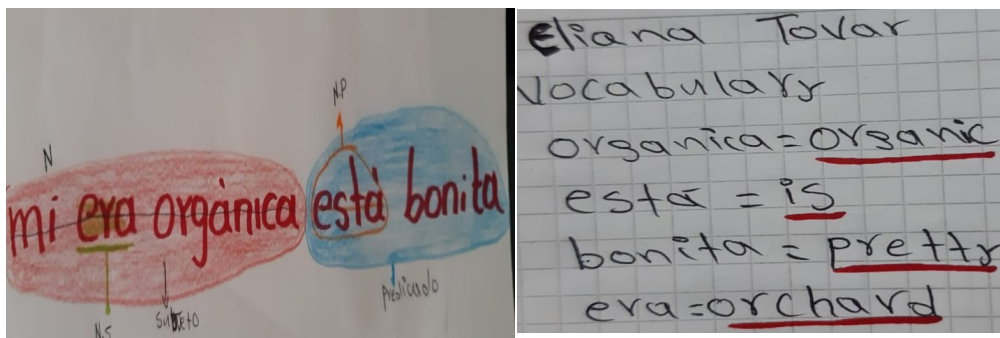 N.P
N
mi era orgánica está bonita
Predicado
Sujeto
N.S
Eliana Tovar
Vocabulary
organica = organic
está = is
bonita = pretty
era = orchard